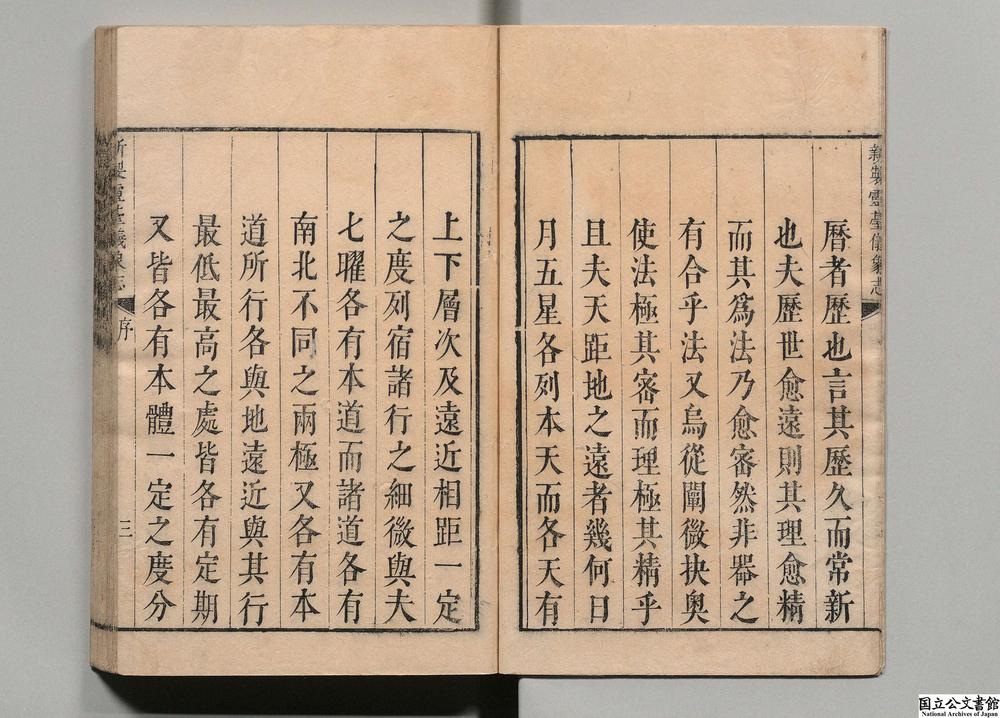 新製靈臺儀象志
曆者歷也言其歷久而常新
也夫歷世愈遠則其理愈精
而其爲法乃愈密然非器之
有合乎法又烏從闡微抉奧
使法極其密而理極其精乎
且夫天距地之遠者幾何日
月五星各列本天而各天有
上下層次及遠近相距一定
之度列宿諸行之細微與夫
七曜各有本道而諸道各有
南北不同之兩極又各有本
道所行各與地遠近與其行
最低最高之處皆各有定期
又皆各有本體一定之度分
新製靈臺儀象志
序
三
国立公文書館
National Archives of Japan